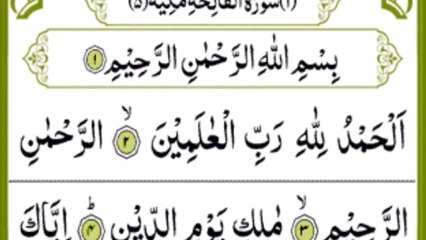 (١) سُوْرَةُ الْفَاتِحَةِ مَكِّيَّةٌ (٥)
بِسْمِ اللهِ الرَّحْمٰنِ الرَّحِيْمِ ۝١
اَلْحَمْدُ لِلّٰهِ رَبِّ الْعٰلَمِيْنَ ۙ۝٢ الرَّحْمٰنِ
الرَّحِيْمِ ۙ۝٣ مٰلِكِ يَوْمِ الدِّيْنِ ۝٤ؕ اِيَّاكَ